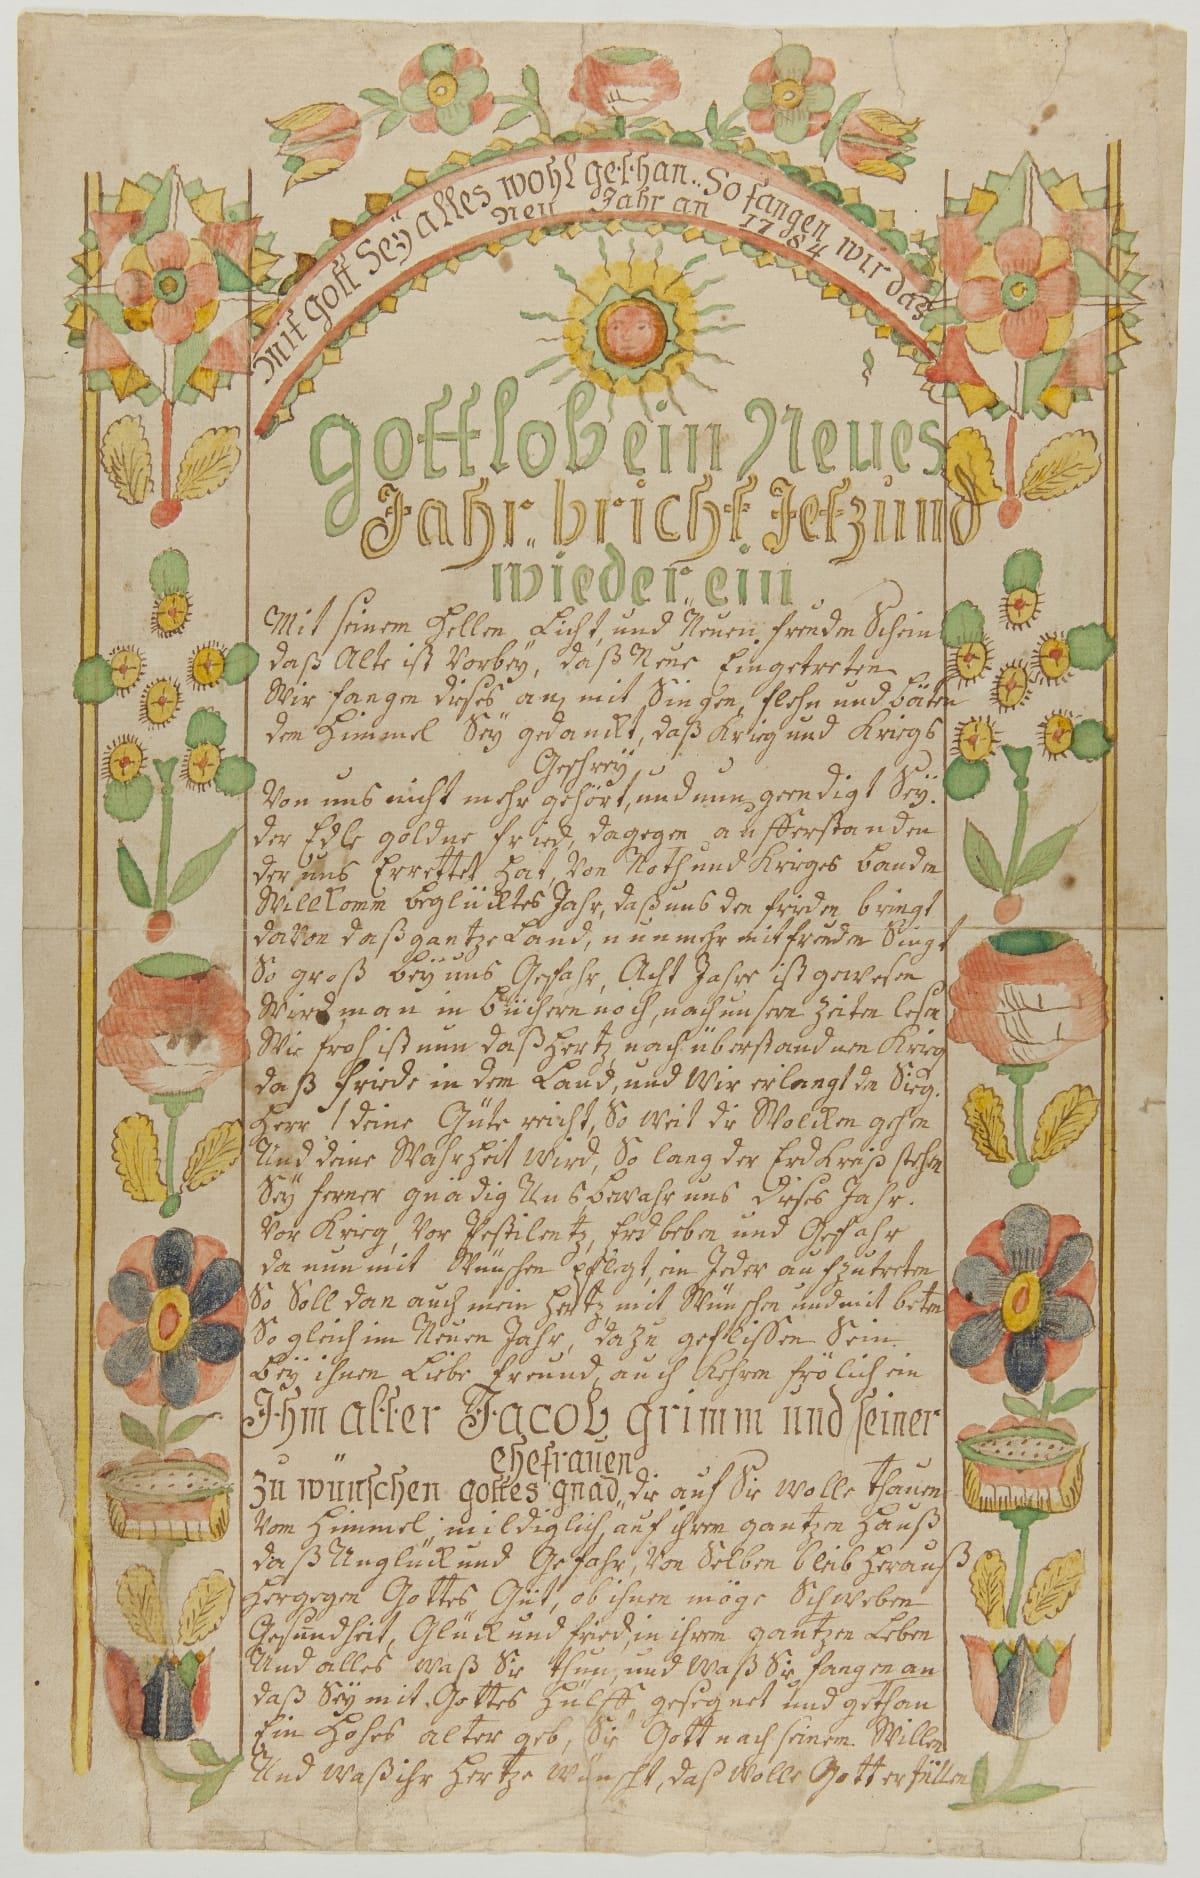 Mit gott Seÿ alles wohl gethan.. So fangen wir das
Neu Jahr an 1784
gottlob ein Neues
Jahr.. bricht Jetzund
wieder ein
Mit seinem Hellen Licht, und Neuen freuden Schein
daß Alte ist Vorbeÿ, daß Neue Eingetreten
Wir fangen dieses an, mit Singen, flehn und bäten
dem Himmel Seÿ gedanckt, daß Krieg und Kriegs
Geschreÿ
Von uns nicht mehr gehört, und nun geendigt Seÿ.
der Edle goldne fried, dagegen aufferstanden
der uns Errettet Hat, Von Noth und Krieges banden
Willkomm beglücktes Jahr, daß uns den frieden bringt
davon daß gantze Land, nunmehr mit freuden Singt
So groß beÿ uns Gefahr, Acht Jahre ist gewesen
Wird man in büchern noch, nach unsern Zeiten lesen
Wie froh ist nun daß Hertz, nach überstandnen Krieg
daß friede in dem Land, und Wir erlangt den Sieg.
Herr ! deine Güte reicht, So weit die Wolcken gehen
Und deine Wahrheit Wird, So lang der ErdKreiß stehen
Seÿ ferner gnädig Uns, bewahr uns dieses Jahr.
Vor Krieg, Vor Pestilentz, Erdbeben und Gefahr
da nun mit Wünschen pflegt, ein Jeder aufzutreten
So Soll dan auch mein Hertz, mit Wünschen und mit beten
So gleich im Neuen Jahr, dazu geflissen Sein
beÿ ihnen Liebe freund, auch Kehren frölich ein
Ihm alter Jacob grimm und seiner
ehefrauen
Zu wünschen gottes gnad,, die auf Sie wolle thauen
Vom Himmel, mildiglich, auf ihren gantzen Hauß
daß Unglück und Gefahr, Von Selben bleib Herauß
Hergegen Gottes Güt, ob ihnen möge Schweben
Gesundheit, Glück und fried, in ihrem gantzen Leben
Und alles waß Sie thun, und waß Sie fangen an
daß Seÿ mit Gottes Hülff, gesegnet und gethan
Ein Hohes alter geb, Sie Gott nach seinem Willen
Und waß ihr Hertze Wünscht, daß wolle Gott erfüllen